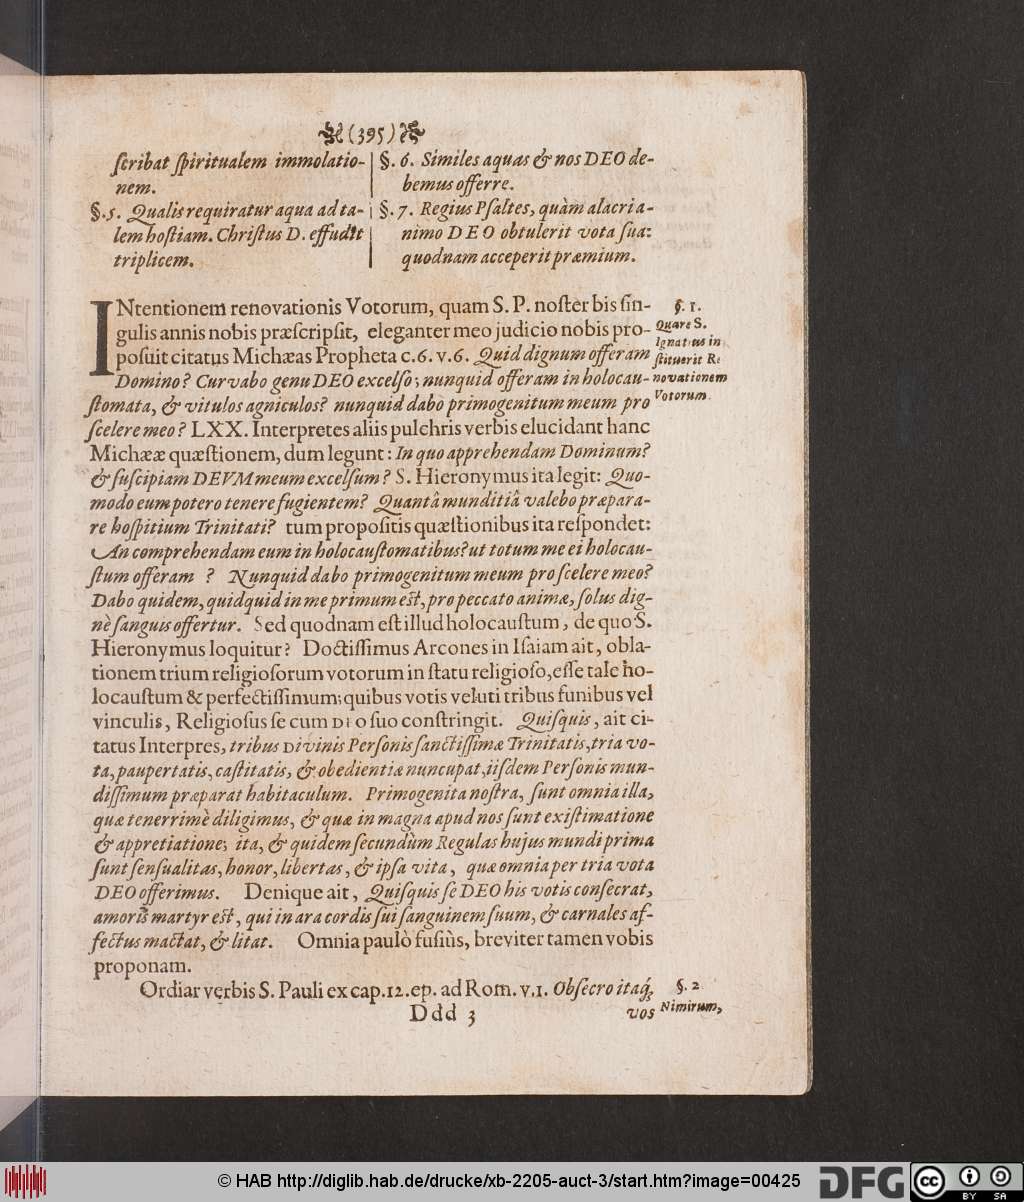 (395)
ſcribat ſpiritualem immolatio-
nem.
§. 5. Qualis requiratur aqua ad ta-
lem hoſtiam. Chriſtus D. effudit
triplicem.
§. 6. Similes aquas & nos DEO de-
bemus offerre.
§. 7. Regius Pſaltes, quàm alacri a-
nimo DEO obtulerit vota ſua:
quodnam acceperit præmium.
INtentionem renovationis Votorum, quam S. P. noſter bis ſin-
gulis annis nobis præſcripſit, eleganter meo judicio nobis pro-
poſuit citatus Michæas Propheta c. 6. v. 6. Quid dignum offeram
Domino? Curvabo genu DEO excelſo; nunquid offeram in holocau-
ſtomata, & vitulos agniculos? nunquid dabo primogenitum meum pro
ſcelere meo? LXX. Interpretes aliis pulchris verbis elucidant hanc
Michææ quæſtionem, dum legunt: In quo apprehendam Dominum?
& ſuſcipiam DEVM meum excelſum? S. Hieronymus ita legit: Quo-
modo eum potero tenere fugientem? Quantâ munditiâ valebo præpara-
re hoſpitium Trinitati? tum propoſitis quæſtionibus ita reſpondet:
An comprehendam eum in holocauſtomatibus? ut totum me ei holocau-
ſtum offeram ? Nunquid dabo primogenitum meum pro ſcelere meo?
Dabo quidem, quidquid in me primum eſt, pro peccato animæ, ſolus dig-
nè ſanguis offertur. Sed quodnam eſt illud holocauſtum, de quo S.
Hieronymus loquitur? Doctiſſimus Arcones in Iſaiam ait, obla-
tionem trium religioſorum votorum in ſtatu religioſo, eſſe tale ho-
locauſtum & perfectiſſimum; quibus votis veluti tribus funibus vel
vinculis, Religioſus ſe cum DEO ſuo conſtringit. Quiſquis, ait ci-
tatus Interpres, tribus Divinis Perſonis ſanctiſſimæ Trinitatis, tria vo-
ta, paupertatis, caſtitatis, & obedientiæ nuncupat, iiſdem Perſonis mun-
diſſimum præparat habitaculum. Primogenita noſtra, ſunt omnia illa,
quæ tenerrimè diligimus, & quæ in magna apud nos ſunt exiſtimatione
& appretiatione; ita, & quidem ſecundùm Regulas hujus mundi prima
ſunt ſenſualitas, honor, libertas, & ipſa vita, quæ omnia per tria vota
DEO offerimus. Denique ait, Quiſquis ſe DEO his votis conſecrat,
amoris martyr eſt, qui in ara cordis ſui ſanguinem ſuum, & carnales af-
fectus mactat, & litat. Omnia paulò fuſiùs, breviter tamen vobis
proponam.
Ordiar verbis S. Pauli ex cap. 12. ep. ad Rom. v. 1. Obſecro itaq́;
Ddd 3
vos
§. 1.
Quare S.
Ignatius in
ſtituerit Re
novationem
Votorum.
§. 2
Nimirum,
© HAB http://diglib.hab.de/drucke/xb-2205-auct-3/start.htm?image=00425
DFG
cc
BY SA